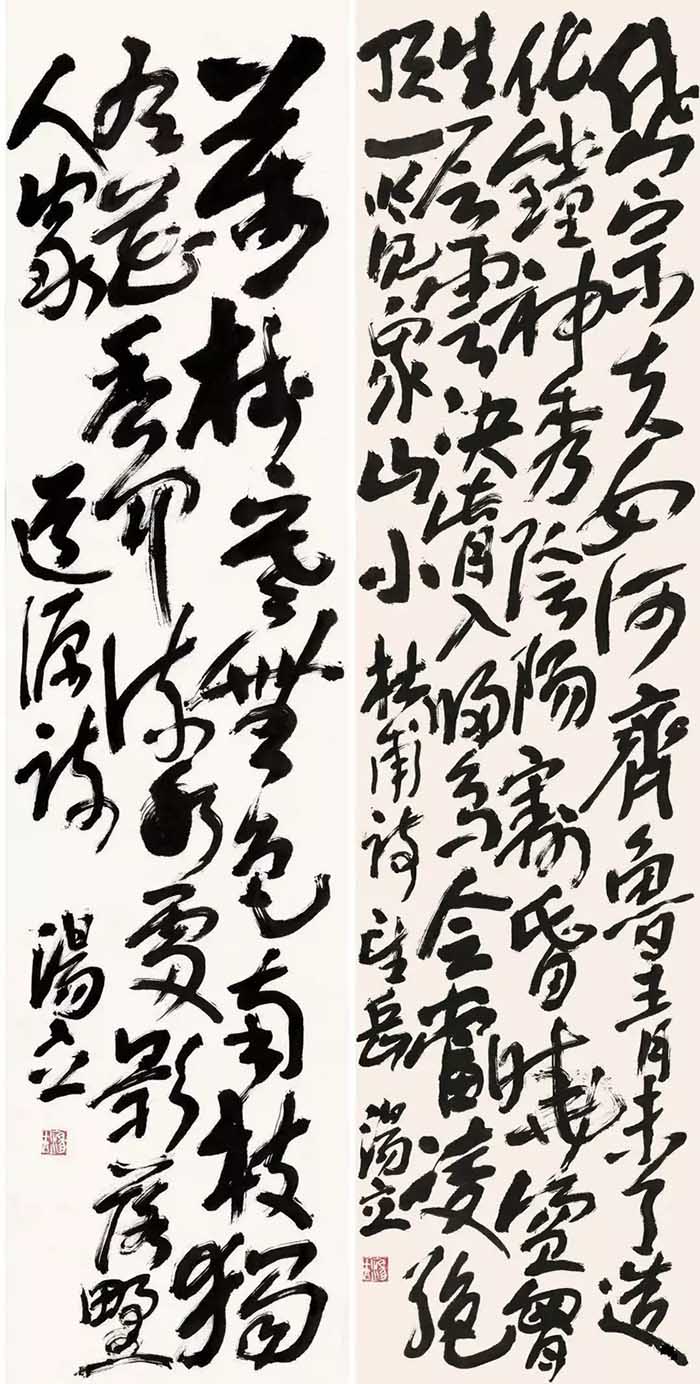 岱宗夫如何齊魯青未了造
化鐘神秀陰陽割昏曉盪胷
生层雲決眥入歸鳥会當凌絕
頂一覽眾山小 杜甫詩望岳 湯立
萬樹寒無色南枝獨
有花香聞流水處影落野
人家 道源詩 湯立